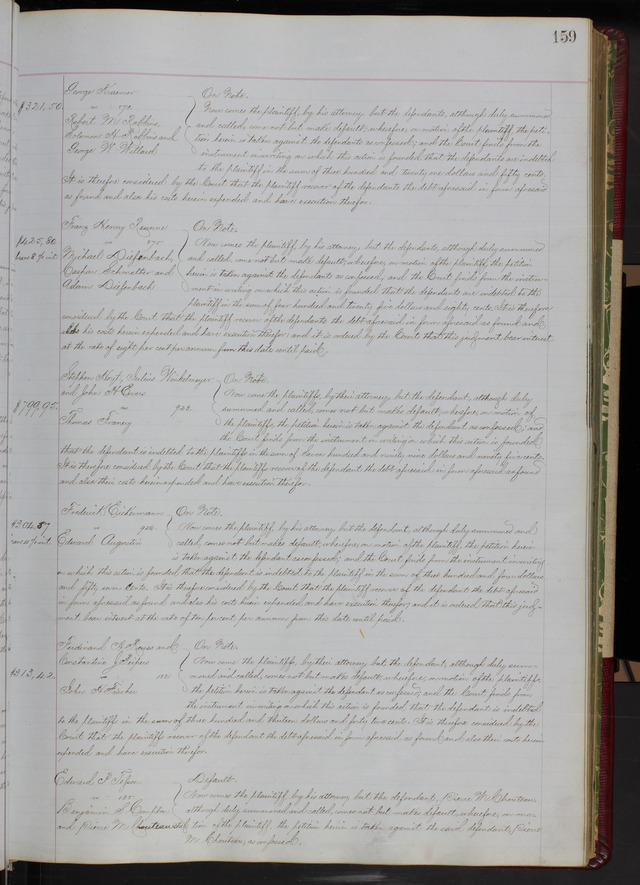 159
George
$321,50.
On Note.
Now comes the plaintiff, by his attorney, but the defendants, although duly summoned
and called, come not but make default; wherefore, on motion of the plaintiff, the peti-
Robbins and
George W. Willard
tion herein is taken against the defendants as confessed; and the Court finds from the
instrument in writing on which this action is founded, that the defendants are indebted
to the plaintiff in the sum of three hundred and twenty one dollars and fifty cents.
It is therefore considered by the Court that the plaintiff recover of the defendants the debt aforesaid in form aforesaid
as found and also his costs herein expended and have execution therefor.
Franz Henry
$425,80
On Note.
Now comes the plaintiff, by his attorney, but the defendants, although duly summoned
Michael Diefenbach,
and called, come not but make default; wherefore, on motion of the plaintiff, the petition
Casper Schmetter and
herein is taken against the defendants as confessed, and the Court finds from the instru-
Adam Diefenbach
ment in writing on which this action is founded, that the defendants are indebted to the
plaintiff in the sum of four hundred and twenty five dollars and eighty cents. It is therefore
considered by the Court that the plaintiff recover of the defendants the debt aforesaid in form aforesaid as found and
also his costs herein expended and have execution therefor; and it is ordered by the Court that this judgment bear interest
at the rate of eight per cent per annum from this date until paid.
Stephen Hoyt, Julius Winkelmeyer
and John H. Evers
$799,95.
On Note.
Now come the plaintiffs, by their attorney, but the defendant, although duly
summoned and called, comes not but makes default; wherefore, on motion of
Thomas Franey
the plaintiffs, the petition herein is taken against the defendant as confessed; and
the Court finds from the instrument in writing on which this action is founded,
that the defendant is indebted to the plaintiffs in the sum of Seven hundred and ninety nine dollars and ninety five cents.
It is therefore considered by the Court that the plaintiffs recover of the defendant the debt aforesaid in form aforesaid as found
and also their costs herein expended and have execution therefor.
Frederick Eickermann
$304.57
On Note.
Now comes the plaintiff, by his attorney, but the defendant, although duly summoned and
Edward Augustin
called, comes not but makes default; wherefore, on motion of the plaintiff, the petition herein
is taken against the defendant as confessed; and the Court finds from the instrument in writing
on which this action is founded, that the defendant is indebted to the plaintiff in the sum of three hundred and four dollars
and fifty seven cents. It is therefore considered by the Court that the plaintiff recover of the defendant the debt aforesaid
in form aforesaid as found and also his costs herein expended and have execution therefor; and it is ordered that this judg-
ment bear interest at the rate of ten per cent per annum from this date until paid.
Ferdinand and
$313,42.
On Note.
Now come the plaintiffs, by their attorney, but the defendant, although duly sum-
moned and called, comes not but makes default; wherefore, on motion of the plaintiffs,
John H. Fischer
the petition herein is taken against the defendant as confessed; and the Court finds from
the instrument in writing on which this action is founded that the defendant is indebted
to the plaintiffs in the sum of three hundred and thirteen dollars and forty two cents. It is therefore considered by the
Court that the plaintiffs recover of the defendant the debt aforesaid in form aforesaid as found and also their costs herein
expended and have execution therefor.
Edward
Default.
Now comes the plaintiff, by his attorney, but the defendant, Pierre M. Chouteau
Benjamin
although duly summoned and called, comes not but makes default; wherefore, on mo-
and Pierre M. Chouteau
tion of the plaintiff, the petition herein is taken against the said defendant, Pierre
M. Chouteau, as confessed.